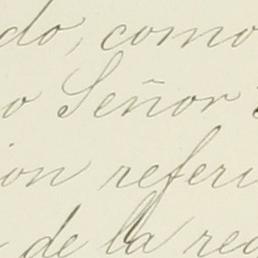 do, como
o Señor
ion referi
de la rec